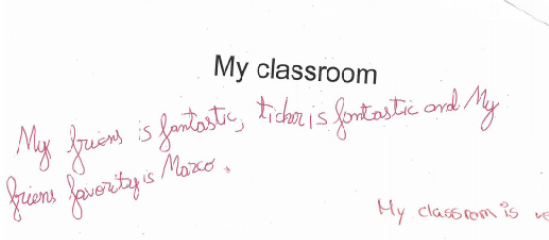 My classroom
My friens is fantastic, ticher is fontastic and My
friens favority is Marco.
My classrom is ve